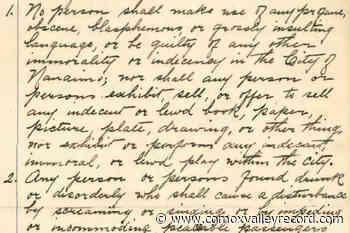 1. No person shall make use of any profane,
obscene, blasphemous, or grossly insulting
language, or be guilty of any other
immorality or indecency in the City of
Nanaimo; nor shall any person or
persons exhibit, sell, or offer to sell
any indecent or lewd book, paper,
picture, plate, drawing, or other thing,
nor exhibit or perform any indecent
immoral, or lewd play within the city.
2. Any person or persons found drunk
or disorderly who shall cause a disturbance
by screaming or singing or impeding
or incommoding peaceable passengers
www.comoxvalleyrecord.com